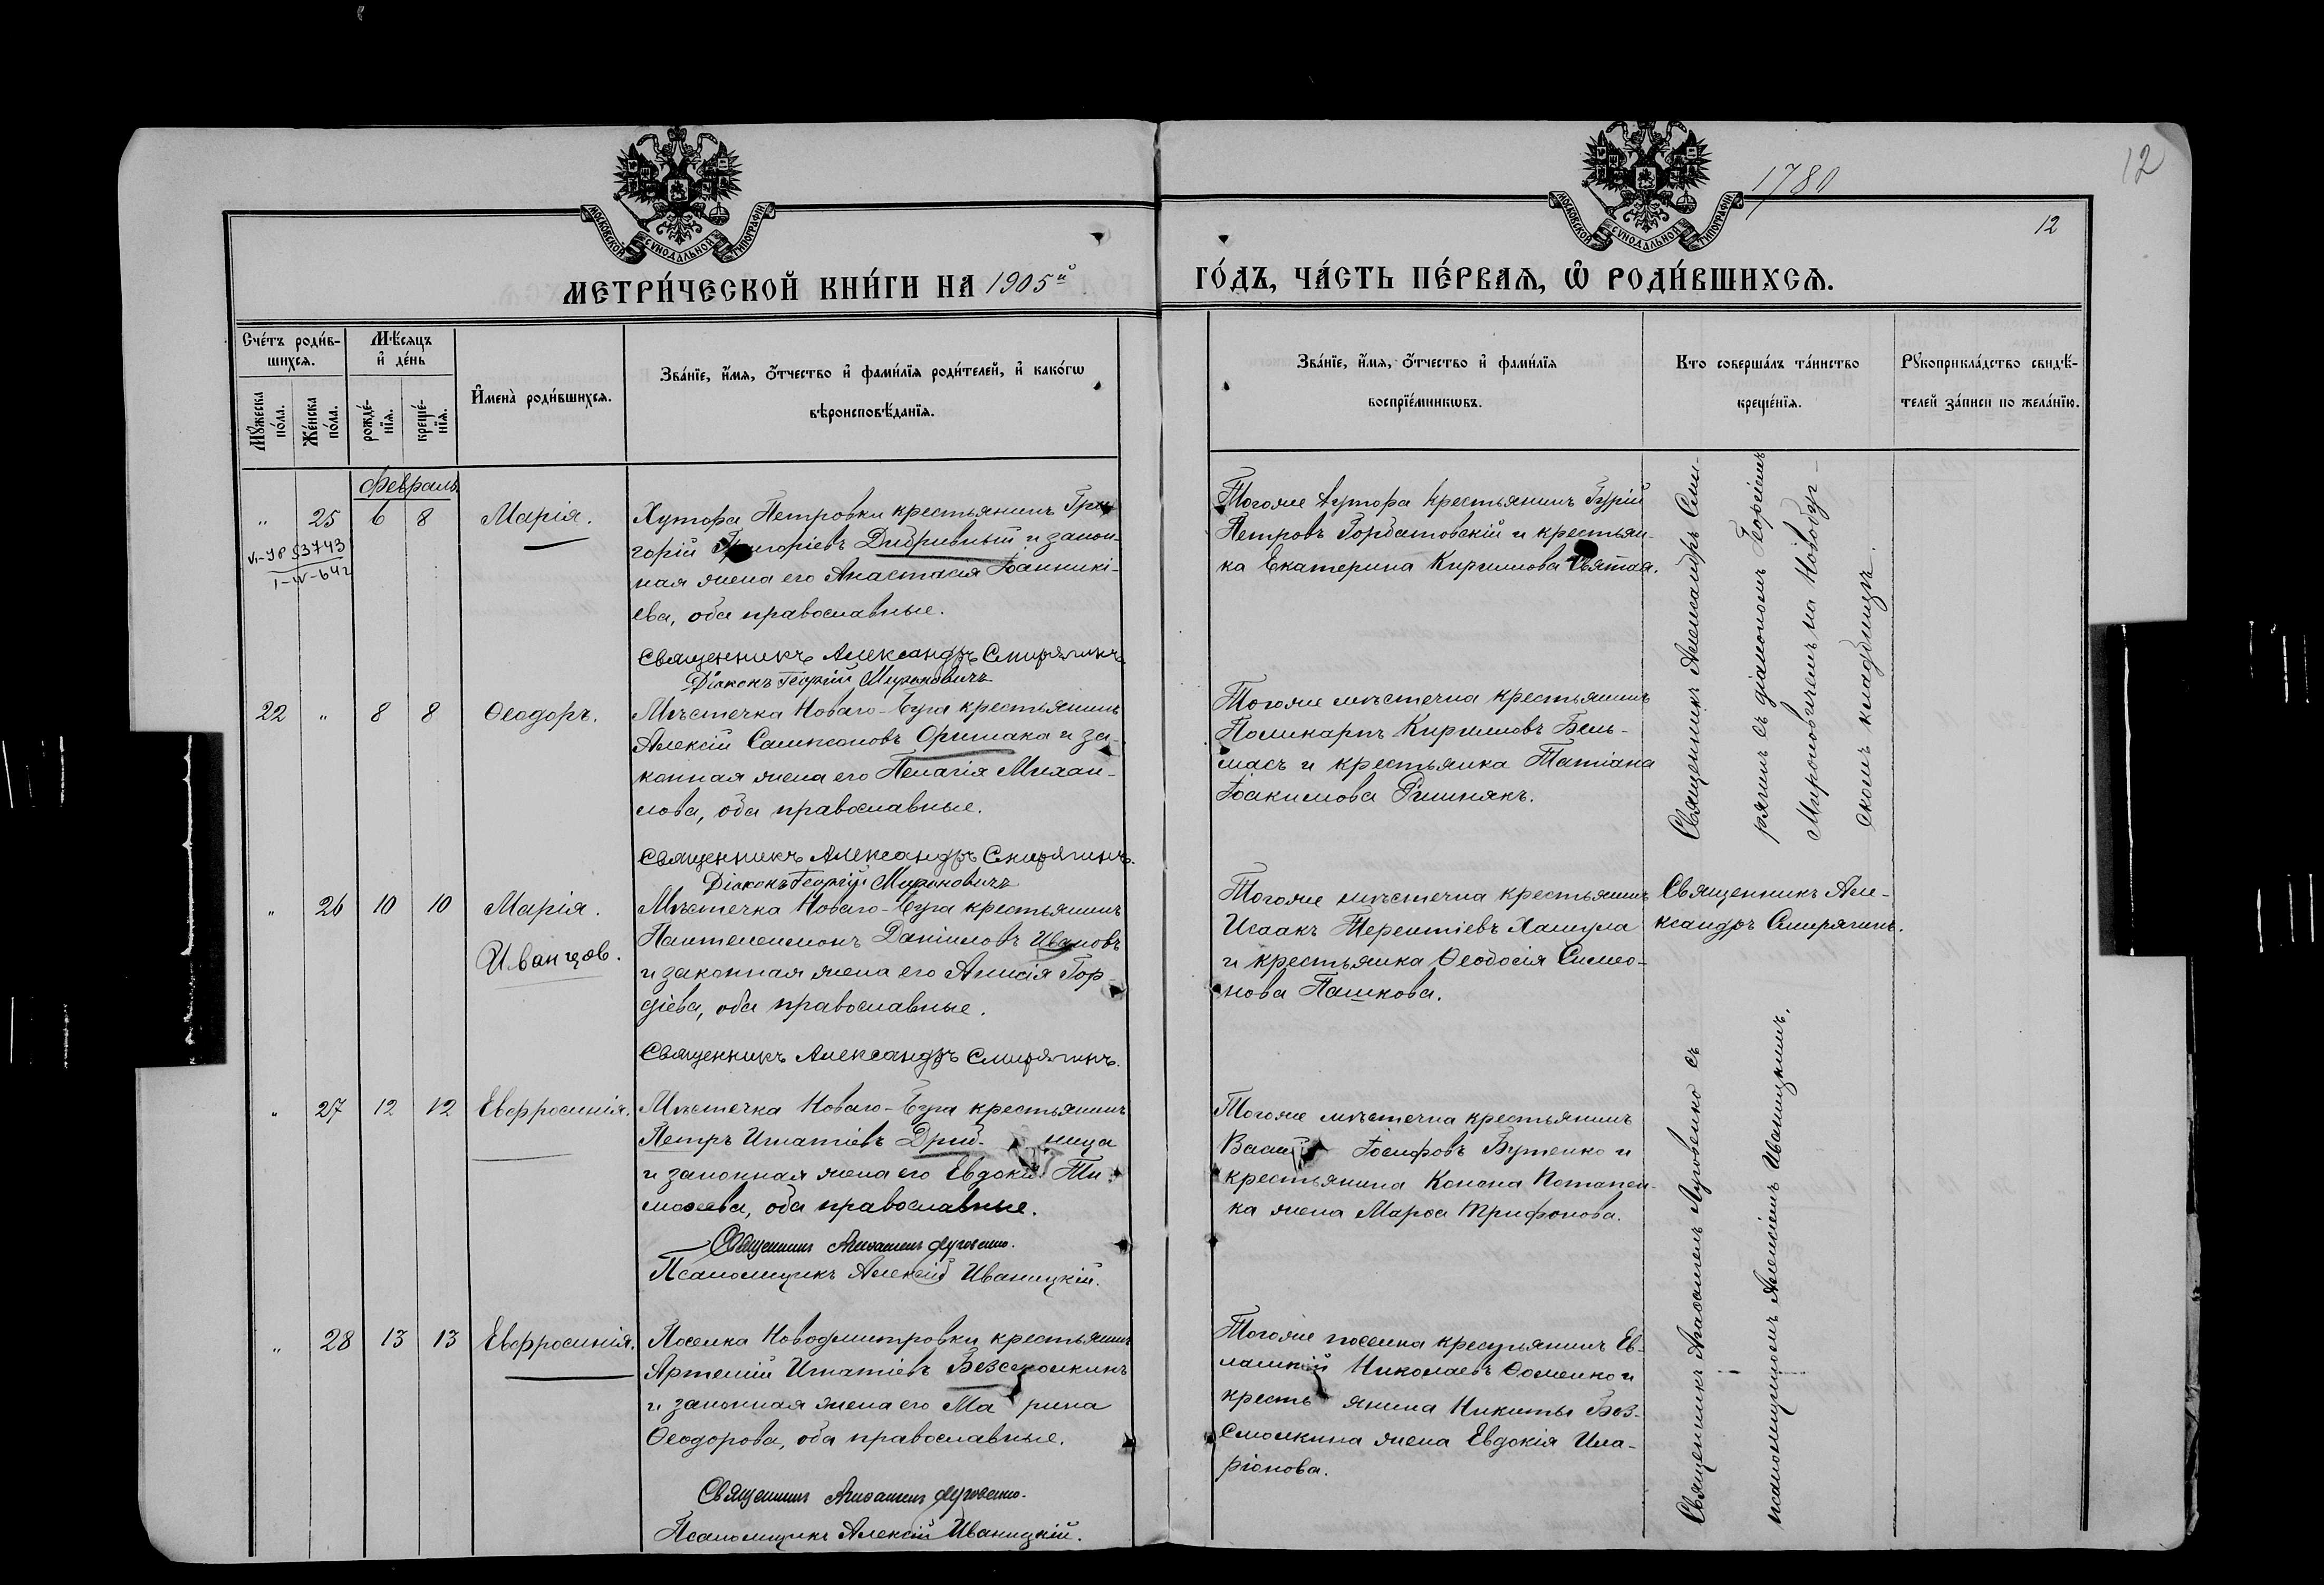 1780
12
12
МОСКОВСКОЙ СѴНОДАЛЬНОЙ ТИПОГРАФІИ
МОСКОВСКОЙ СѴНОДАЛЬНОЙ ТИПОГРАФІИ
МЕТРИ́ЧЕСКОЙ КНИ́ГИ НА 1905й
ГО́ДЪ, ЧА́СТЬ ПЕ́РВАѦ, Ѡ҆ РОДИ́ВШИХСѦ.
Счéтъ роди́в-
шихсѧ.
Мꙋ́жеска
по́ла.
Же́нска
по́ла.
Мѣ́сяцъ
и҆ де́нь
рожде́-
нїѧ.
креще́-
нїѧ.
И҆мена̀ роди́вшихсѧ.
Зва́нїе, и҆́мѧ, ѻ҆́тчество и҆ фами́лїѧ роди́телей, и҆ како́гѡ
вѣроисповѣ́данїѧ.
Зва́нїе, и҆́мѧ, ѻ҆́тчество и҆ фами́лїѧ
воспрїе́мникѡвъ.
Кто соверша́лъ та́инство
креще́нїѧ.
Рꙋкоприкла́дство свидѣ́-
телей за́писи по жела́нїю.
Февраль
„ 25 6 8 Марія.
53743
1-IV-64г
Хутора Петровки крестьянинъ Гри-
горій Григоріевъ Дибривный и закон-
ная жена его Анастасія Іоанникі-
ева, оба православные.
Священникъ Александръ Смирягинъ
Діаконъ Георгій Мироновичъ
Тогоже хутора крестьянинъ Гурій
Петровъ Горбатовскій и крестьян-
ка Екатерина Кириллова Святая.
Священникъ Александръ Сми-
рягинъ съ діакономъ Георгіемъ
Мироновичемъ на Новобуг-
скомъ кладбищѣ.
22 „ 8 8 Ѳеодоръ.
Мѣстечка Новаго-Буга крестьянинъ
Алексій Сампсоновъ Оримака и за-
конная жена его Пелагія Михаи-
лова, оба православные.
Священникъ Александръ Смирягинъ.
Діаконъ Георгій Мироновичъ
Тогоже мѣстечка крестьянинъ
Поликарпъ Кирилловъ Бель-
масъ и крестьянка Татіана
Іоакимова Римнякъ.
„ 26 10 10 Марія.
Иванцов.
Мѣстечка Новаго-Буга крестьянинъ
Пантелеимонъ Даніиловъ Ивановъ
и законная жена его Анисія Гор-
діева, оба православные.
Священникъ Александръ Смирягинъ.
Тогоже мѣстечка крестьянинъ
Исаакъ Терентіевъ Хамула
и крестьянка Ѳеодосія Симео-
нова Пашкова.
Священникъ Але-
ксандръ Смирягинъ.
„ 27 12 12 Евфросинія.
Мѣстечка Новаго-Буга крестьянинъ
Петръ Игнатіевъ ница
и законная жена его Евдокія Ти-
моѳеева, оба православные.
Священникъ Луговенко.
Псаломщикъ Алексій Иваницкій.
Тогоже мѣстечка крестьянинъ
Василій Іосифовъ Бутенко и
крестьянина Конона Потапен-
ка жена Марѳа Трифонова.
Священникъ Луговенко съ
псаломщикомъ Алексіемъ Иваницкимъ.
„ 28 13 13 Евфросинія.
Поселка Новодмитровки крестьянинъ
Артемій Игнатіевъ Безсмолкинъ
и законная жена его Ма рина
Ѳеодорова, оба православные.
Священникъ Луговенко.
Псаломщикъ Алексій Иваницкій.
Тогоже поселка крестьянинъ Ев-
лампій Николаевъ Ѳоменко и
кресть янина Никиты Без-
смолкина жена Евдокія Ила-
ріонова.